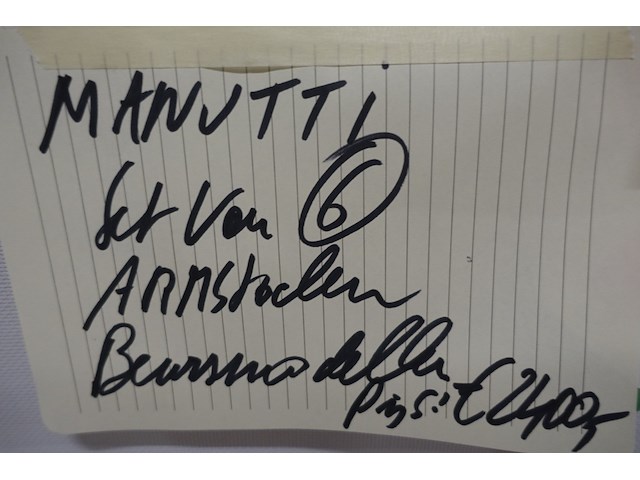 MANUTTI
Set van 6
ARMstoelen
Beursmodellen
Prijs: € 2400,-